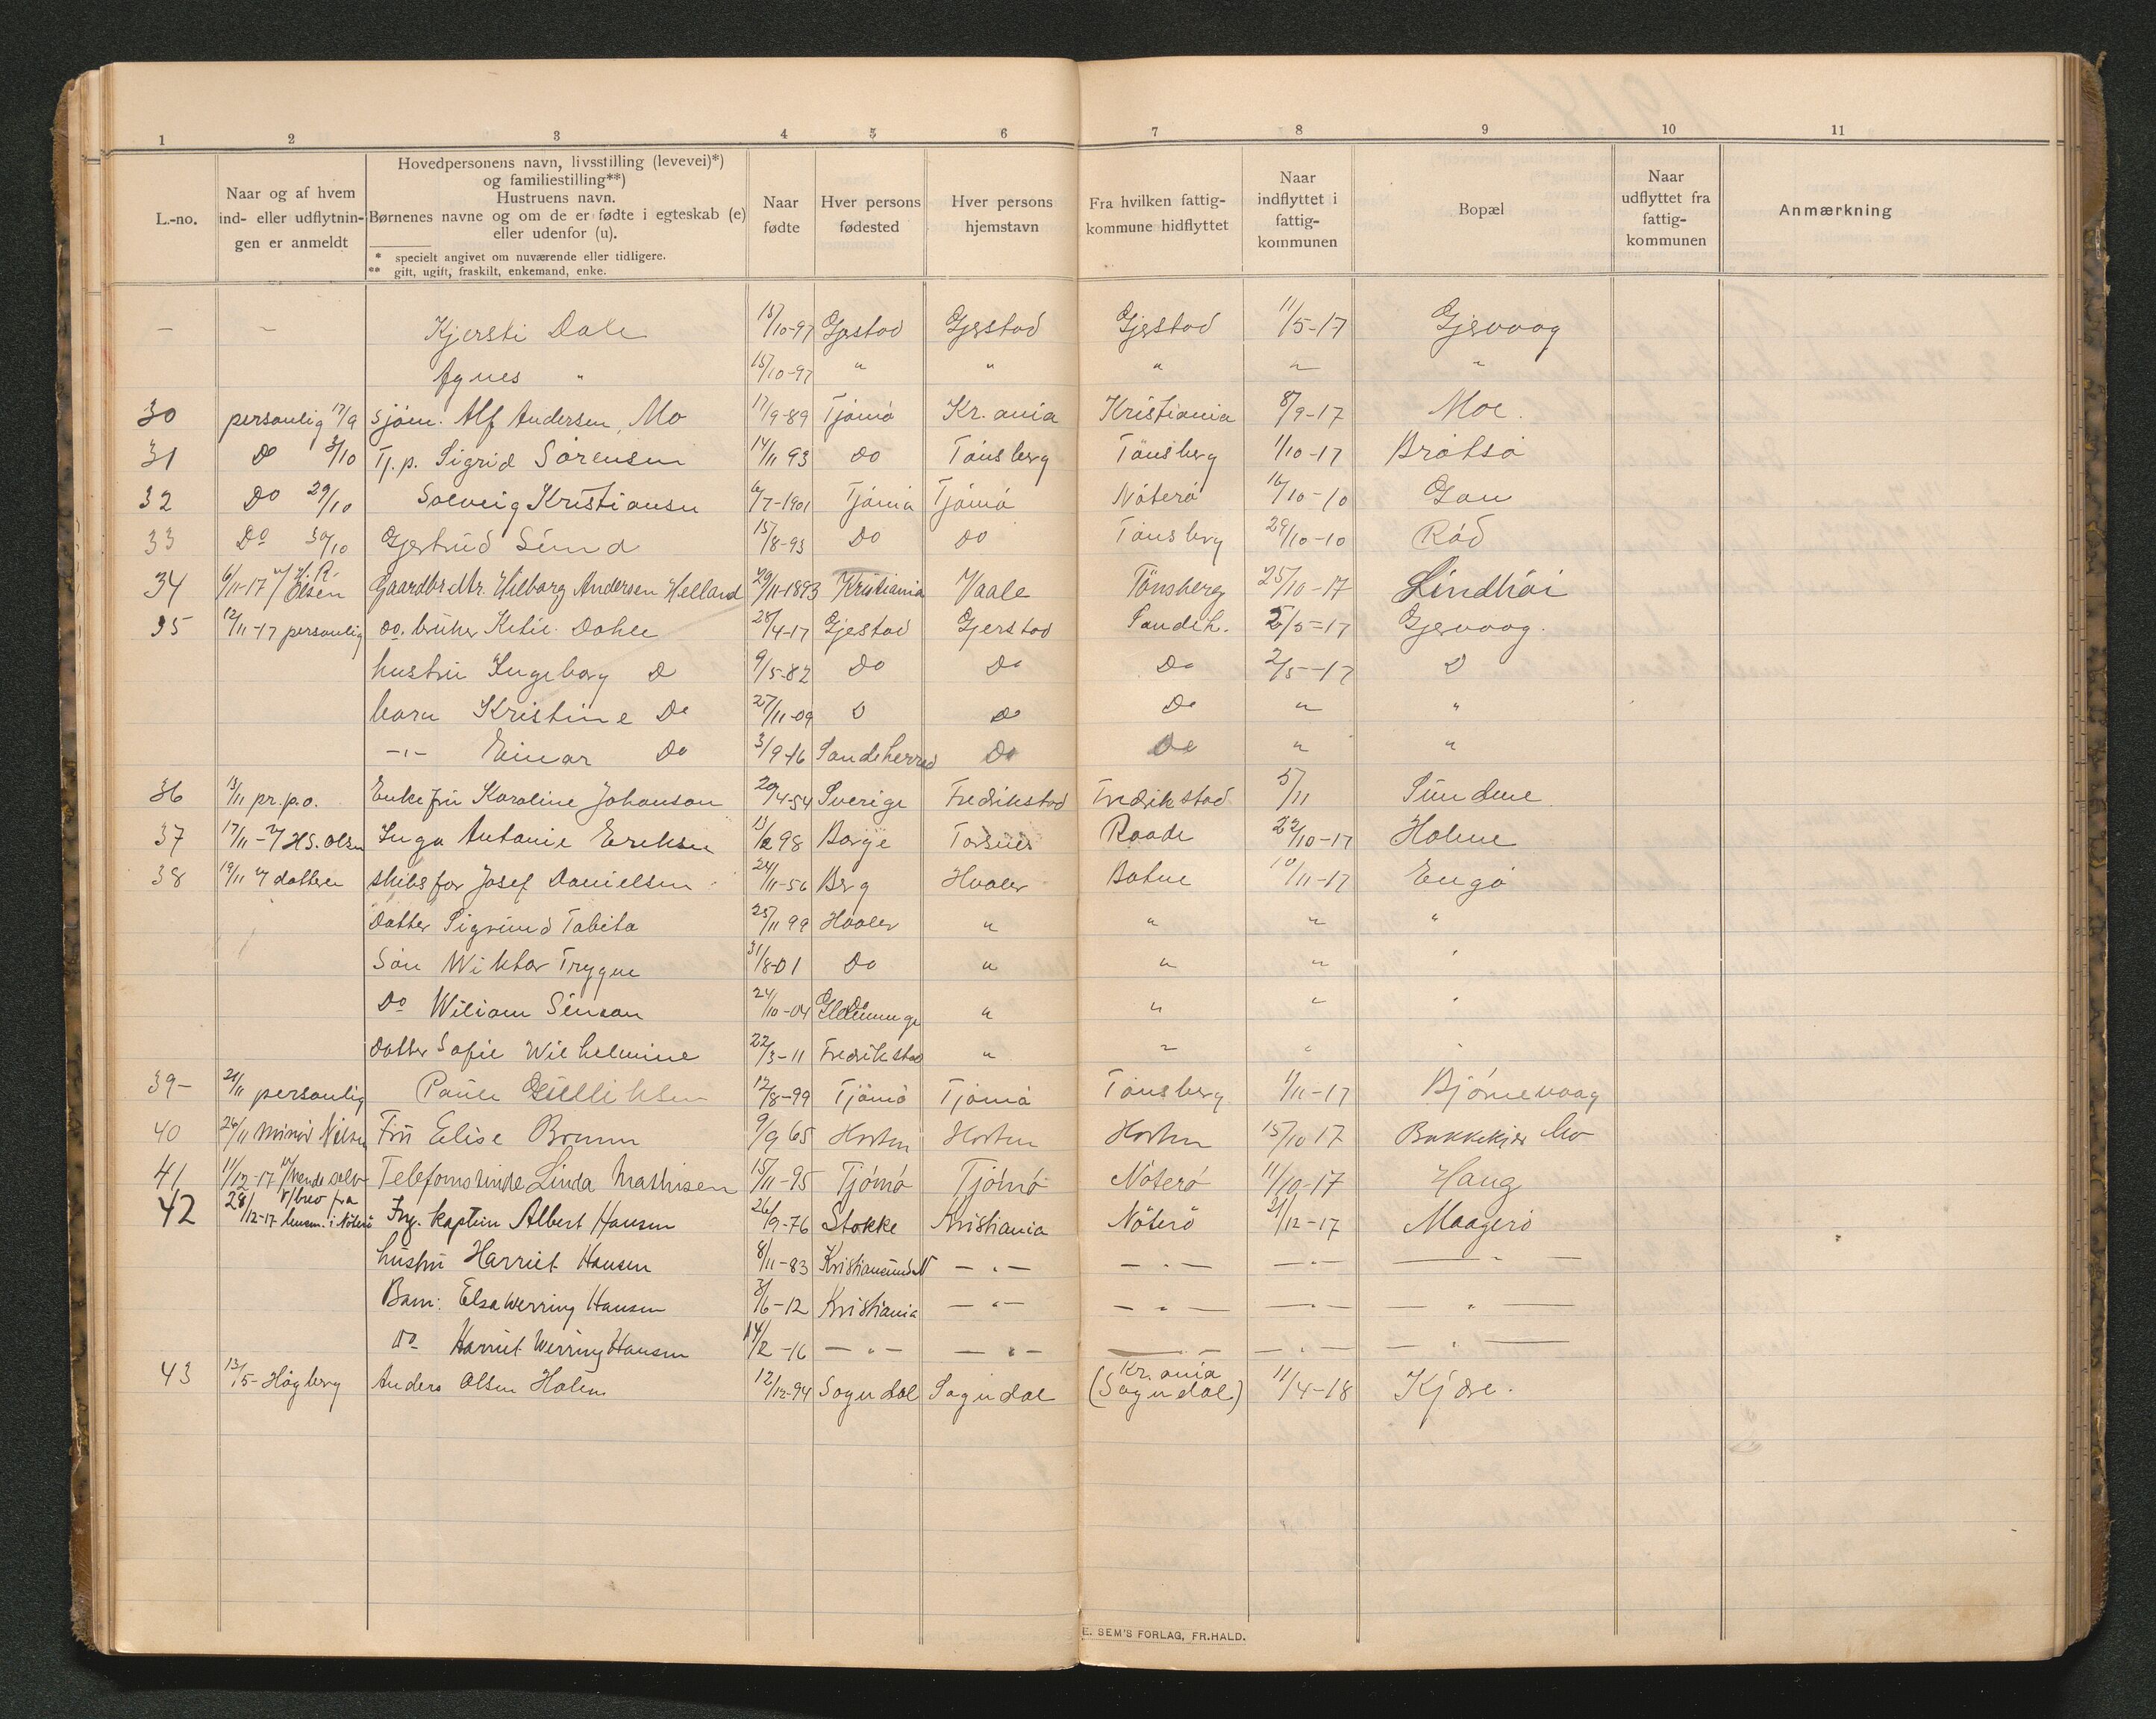 1 2 3 4 5 6 7 8 9 10 11
L.-no. | Naar og af hvem ind- eller udflytnin- gen er anmeldt | Hovedpersonens navn, livsstilling (levevei)*) og familiestilling**) Hustruens navn. Børnenes navne og om de er fødte i egteskab (e) eller udenfor (u). * specielt angivet om nuværende eller tidligere. ** gift, ugift, fraskilt, enkemand, enke. | Naar fødte | Hver persons fødested | Hver persons hjemstavn | Fra hvilken fattig- kommune hidflyttet | Naar indflyttet i fattig- kommunen | Bopæl | Naar udflyttet fra fattig- kommunen | Anmærkning
– – Kjersti Dale 15/10-97 Gjestad Gjestad Gjestad 11/5-17 Gjervaag
Agnes " 15/10-97 " " " " "
30 personlig 17/9 Sjøm. Alf Andersen, Mo 17/9-89 Tjømø Kr.ania Kristiania 8/9-17 Moe.
31 Do 3/10 Tj.p. Sigrid Sørensen 14/11 93 Do Tønsberg Tønsberg 1/10-17 Bråtsø
32 Do 29/10 Solveig Kristiansen 6/7-1901 Tjømø Tjømø Nøterø 16/10-10 Gon
33 Do 30/10 Gjertrud Sund 15/8-93 Do Do Tønsberg 29/10-10 Rød
34 6/11-17 v/ H. R. Olsen Gaardbr.dtr. Wilborg Andersen Helland 29/11-1893 Kristiania Vaale Tönsberg 25/10-17 Lindhöi
35 12/11-17 personlig do. bruker Ketil Dahle 28/4-17 Gjestad Gjerstad Sandeh. 2/5-17 Gjervaag.
hustru Ingeborg D 9/5-82 Do Do Do 2/5-17 D
barn Kristine Do 27/11-09 D Do Do " "
-"- Einar Do 3/9-16 Sandeherred Do Do " "
36 13/11 pr.p.o. Enkefru Karoline Johanson 20/4-54 Sverige Fredrikstad Fredrikstad 5/11 Sundene
37 17/11 - v/ HS. Olsen Inga Antonie Eriksen 13/12 98 Borge Torsnes Raade 22/10-17 Holme
38 19/11 v/ datteren skibsfør Josef Danielsen 24/11-56 Berg Hvaler Botne 10/11-17 Engø
Datter Sigrund Tabita 25/11 99 Hvaler " " " "
Søn Wiktor Trygve 31/8-01 Do " " " "
Do Wiliam Simson 24/10-04 Glemminge " " " "
Datter Sofie Wilhelmine 22/3-11 Fredrikstad " " " "
39- 21/11 personlig Paul Gulliksen 12/8-99 Tjømø Tjømø Tønsberg 1/11-17 Bjørnevaag
40 26/11 Nilsen Fru Elise Bruun 9/9 65 Horten Horten Horten 15/10 17 Bakkekjær Mo
41 11/12-17 v/vedk. selv Telefonistinde Linda Mathisen 15/11-95 Tjømø Tjømø Nøterø 11/10-17 Haug
42 28/12-17 v/brev fra lensm. i Nøterø Ing. kaptein Albert Hansen 26/9-76 Stokke Kristiania Nøterø 21/12-17 Maagerø
hustru Harriet Hansen 8/11-83 Kristiansund N — " — — " — — " — — " —
Barn: Elsa Werring Hansen 3/6-12 Kristiania — " — — " — — " — — " —
Do Harriet Werring Hansen 14/2-16 — " — — " — — " — — " — — " —
43 13/5- Høgberg Anders Olsen Holen 12/12-94 Sogndal Sogndal Kr.ania (Sogndal) 11/4-18 Kjære.
E. SEM'S FORLAG, FR.HALD.